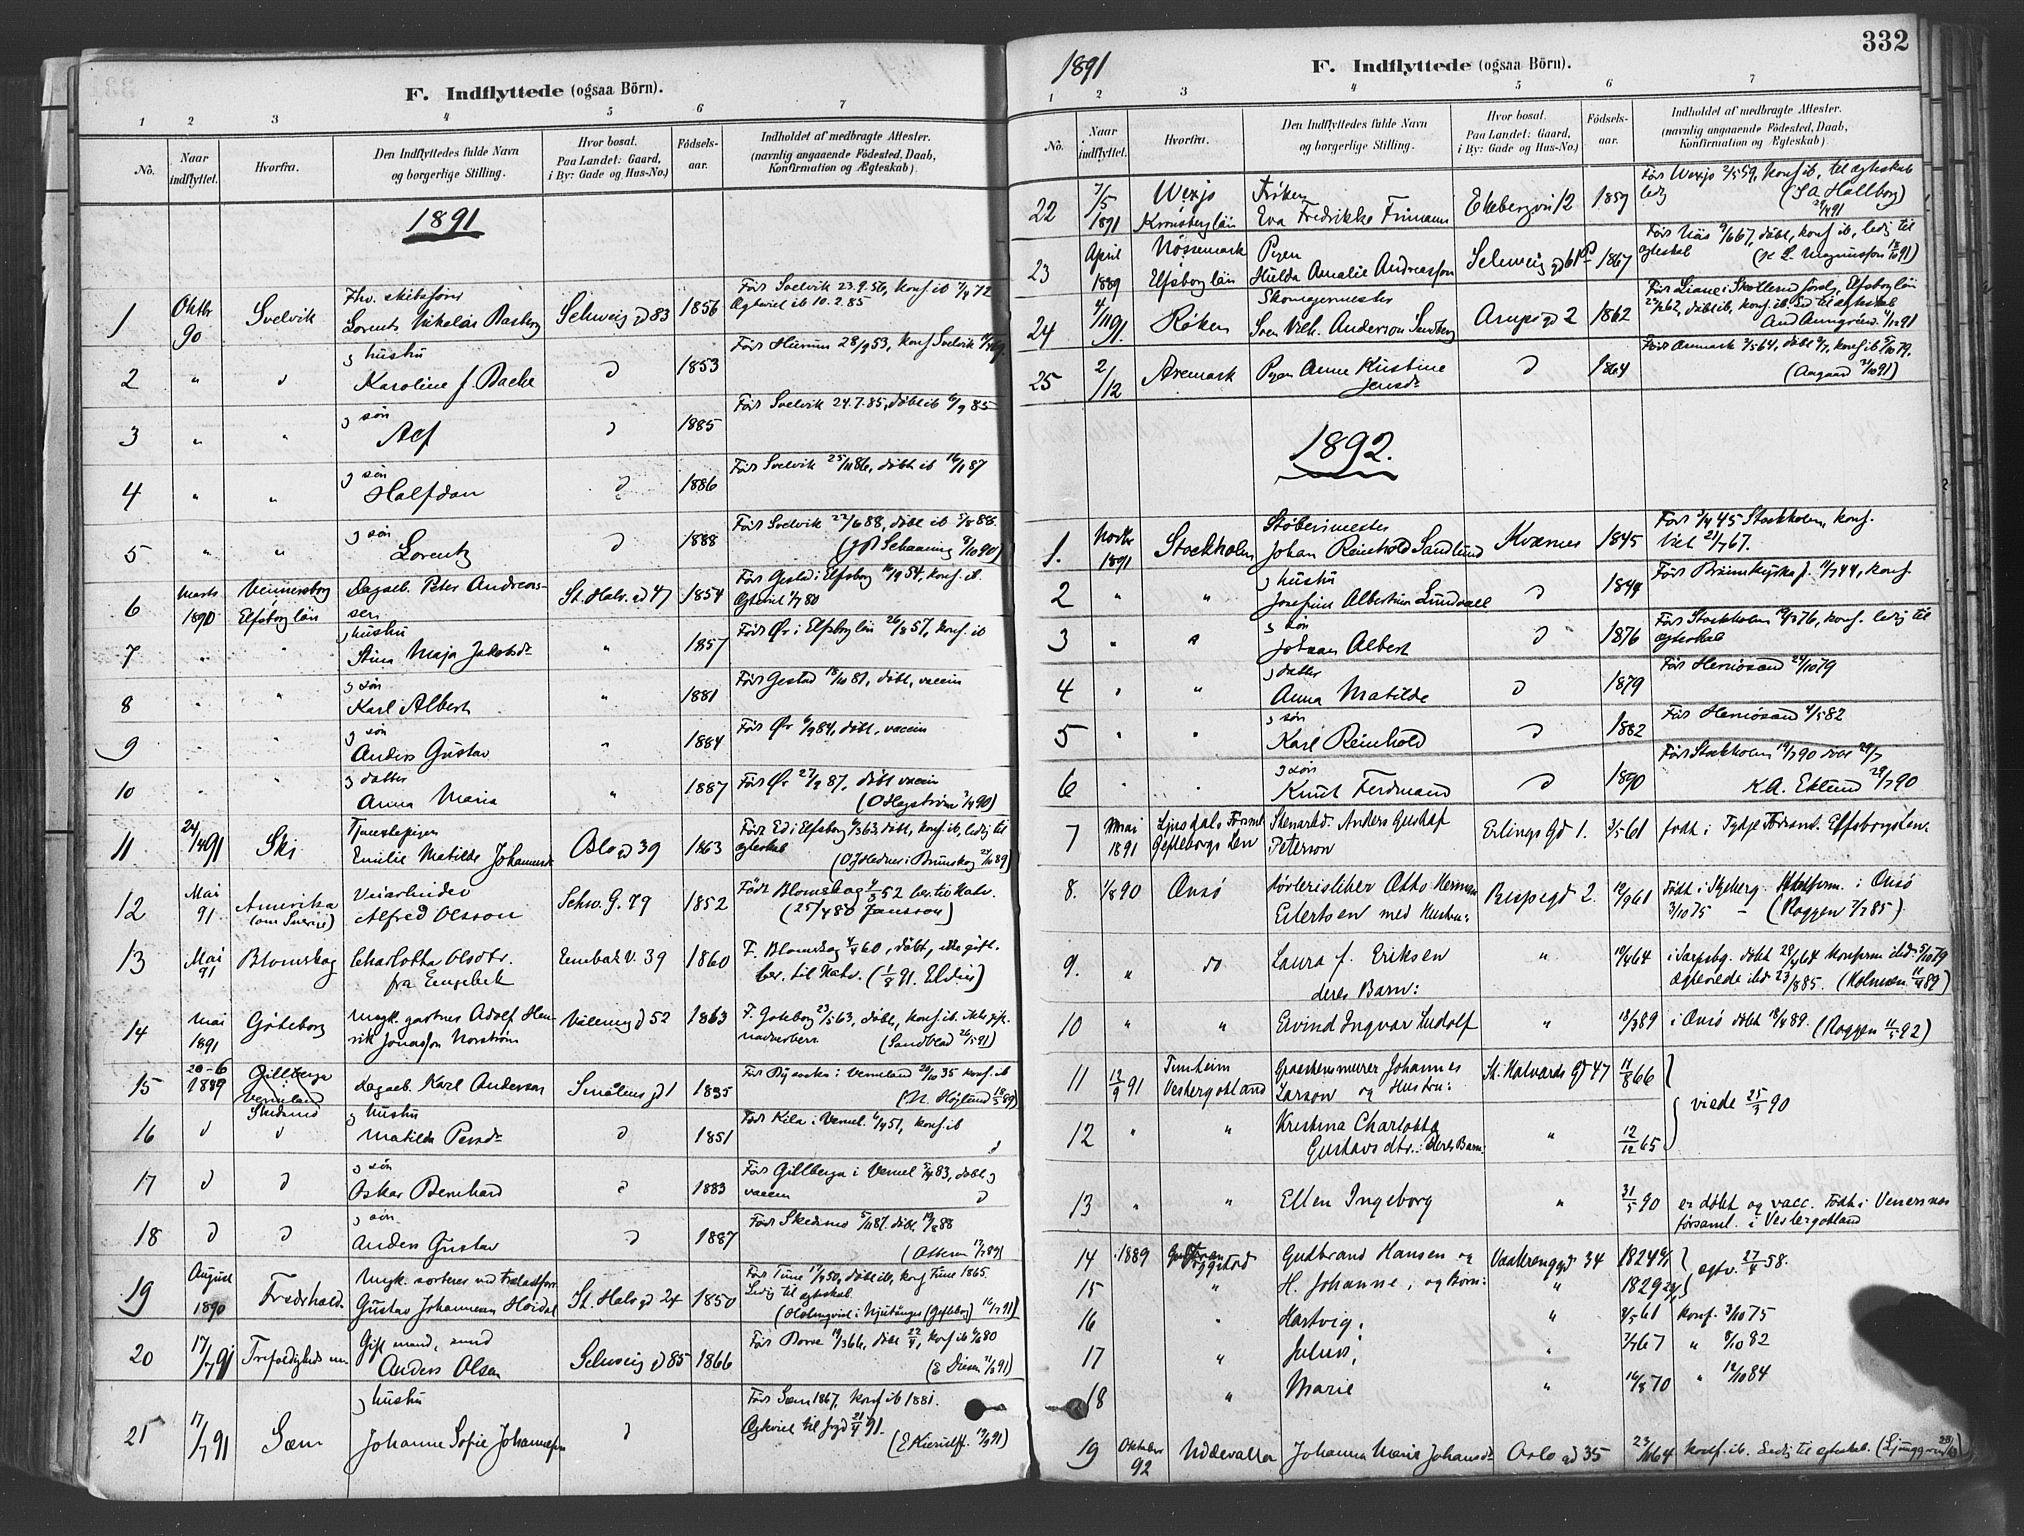 F. Indflyttede (ogsaa Börn).
1 2 3 4 5 6 7
No. Naar indflyttet. Hvorfra. Den Indflyttedes fulde Navn og borgerlige Stilling. Hvor bosat. Paa Landet: Gaard, i By: Gade og Hus-No.) Födsels-aar. Indholdet af medbragte Attester. (navnlig angaaende Födested, Daab, Konfirmation og Ægteskab).
1891
1 Oktbr 90 Svelvik Lorentz Nikolai Basberg Schweigd 83 1856 Født Svelvik 23.9.56, konf. ib 7/4 72
Ægteviet ib 10.2.85
2 " d g hustru Karoline f. Bache d 1853 Født Hurum 28/9 53, konf Svelvik
3 " " g søn Alf d 1885 Født Svelvik 24.7.85, døbt ib 6/9 85
4 " " g søn Halfdan d 1886 Født Svelvik 25/11 86, døbt ib 16/1 87
5 " " g søn Lorentz d 1888 Født Svelvik 22/6 88, døbt ib 5/8 88.
(J P Schanning 9/10 90)
6 Marts 1890 Venersborg Elfsborg län Dagarb. Peter Andreas-sen St. Halv. gd 47 1854 Født Gestad i Elfsborg 16/9 54, konf. ib.
Ægteviet 1/7 80
7 " " g hustru Stina Maja Jakobsdr " 1857 Født Ør i Elfsborg län 26/8 57, konf. ib
8 " " g søn Karl Albert " 1881 Født Gestad 18/10 81, døbt, vaccin
9 " " g søn Anders Gustav " 1884 Født Ør 6/9 84, døbt, vaccin
10 " " g datter Anna Maria " 1887 Født Ør 27/9 87, døbt vaccin
(O Hagström 7/4 90)
11 24/4 91 Ski Tjenestepigen Emilie Matilde Johannesdr Oslo gd 39 1863 Født Ed i Elfsborg 6/3 63, døbt, konf. ib, ledig til
ægteskab
12 Mai 91 Amerika (om Sverige) Veiarbeider Alfred Olsson Schw. G. 79 1852 Født Blomskog 4/3 52 ber. til Natv.
(25/4 80 Jansson)
13 Mai 91 Blomskog Charlotta Olsdtr. fra Engebek Enebak V. 39 1860 F. Blomskog 4/4 60, døbt, ikke gift.
ber. til Natv. (1/8 91. Eldin)
14 Mai 1891 Göteborg Ungk. gartner Adolf Hen-rik Jonasson Norström Vaalereng d 52 1863 F. Goteborg 23/5 63, døbt, konf. ib. ikke gift.
nadverber (Sandblad 26/5 91)
15 20-6 1889 Gillberga Vermland Dagarb. Karl Anderson Smålens gd 1 1835 konf. ib
16 d Skedsmo d g hustru Matilda Persdr d 1851 Født Kila i Verml. 6/4 51, konf. ib d
17 d d g søn Oskar Bernhard d 1883 Født Gillberga i Verml 3/4 83, døbt g
vaccin d
18 d d g søn Anders Gustav d 1887 Født Skedsmo 5/11 87. døbt 19/2 88
19 August 1890 Fredrhald. Ungk. sorterer ved trælastforr. Gustav Johannesen Høidal St. Halv gd 24 1850 Født Tune 17/4 50, døbt ib, konf Tune 1865.
Ledig til ægteskab.
20 17/7 91 Trefoldigheds m Gift mand, smed Anders Olsen Schweig d 85 1866 Født Borre 19/3 66, døbt 22/4, konf ib 6/6 80
21 17/7 91 Sem g hustru Johanne Sofie Johannesen d Født Sem 1867, konf ib 1881.
Ægteviet til 21/4 91. (E Kierulff. 17/7 91)
332
1891
F. Indflyttede (ogsaa Börn).
1 2 3 4 5 6 7
No. Naar indflyttet. Hvorfra. Den Indflyttedes fulde Navn og borgerlige Stilling. Hvor bosat. Paa Landet: Gaard, i By: Gade og Hus-No.) Födsels-aar. Indholdet af medbragte Attester. (navnlig angaaende Födested, Daab, Konfirmation og Ægteskab).
22 7/5 1891 Wexjo Kronoberg län Frøken Eva Fredrikke Frimann Ekebergvei 12 1859 Født Wexjo 2/5 59, konf. ib, til ægteskab
ledig (S A Hallborg 29/4 91)
23 April 1889 Nössemark Elfsborg län Pigen Hulda Amalie Andreasson Schweig gd 61 1867 døbt, konf. ib, ledig til
ægteskab
24 4/11 91. Røken Skomagermester Sven Vilh. Anderson Arups gd 2 1862 døbt ib, konf. ib. Led. til ægteskab
25 2/12 Aremark Pigen Anne Kristine Jensdr d 1864 Født Aremark 2/5 64, døbt 9/7, konf ib 5/10 79.
(Aagaard 21/10 91)
1892.
1. Novbr 1891 Stockholm Støberimester Johan Reinhold Sandlund Kværner 1845 Født 3/4 45 Stockholm, konf.
Viet 21/7 67.
2 " " g hustru Josefine Albertina Lundvall d 1844 konf.
3 " " g søn Johan Albert d 1876 Født Stockholm 19/3 76, konf. ledig til
ægteskab
4 " " g datter Anna Matilde d 1879 Født Hernösand 24/10 79
5 " " g søn Karl Reinhold d 1882 Født Hernösand 4/5 82
6 " " g søn Knut Ferdinand d 1890 Født Stockholm 19/7 90
K.A. Eklund 29/7 90
7 Mai 1891 Ljusdals Försml Gefleborgs Len Stenarbd. Anders Gustaf Peterson Erlings Gd 1. 3/5 61 født i Församl. Elfsborgslen.
8. 1/8 90 Onsö Otto Herman Eilertsen med Hustru: Bispegd 2. 19/9 61 Født i Skjeberg. Konfirm. i Onsö
3/10 75 — (Roggen 7/7 85)
9. " do Laura f. Eriksen deres Barn: " 19/4 64 i Sarpsbg. døbt 28/4 64 Konfirm ibd. 5/10 79
Ægteviede ibd 23/8 85. (Holmsen 11/4 89)
10 " " Eivind Ingvar Ludolf " 18/3 89 i Onsö døbt 18/4 89. (Roggen 11/5 92)
11 12/9 91 Timheim Vestergotland Graastensmurer Johannes Larson og Hustru: St. Halvards Gd 47 11/8 66 viede 25/3 90
12 " " Kristina Charlotta Gustavs dtr.: deres Barn: " 12/12 65
13 " " Ellen Ingeborg " 31/5 90 er døbt og vacc. Født i Venersnæs
församl. i Vestergotland
14 1889 Gudbrand Hansen og Vaalerenggd 34 1824 ægtv. 27/4 58.
15 " H. Johanne, og Børn: " 1829
16 " Hartvig, " 8/5 61 konf. 3/10 75
17 " Julius, " 7/4 67 " 8/10 82
18 " Marie " 16/8 70 " 12/10 84
19 Oktober 92 Uddevalla Johanna Marie Johansdr Oslo gd 35 23/11 64 konf. ib. Ledig til ægteskab.